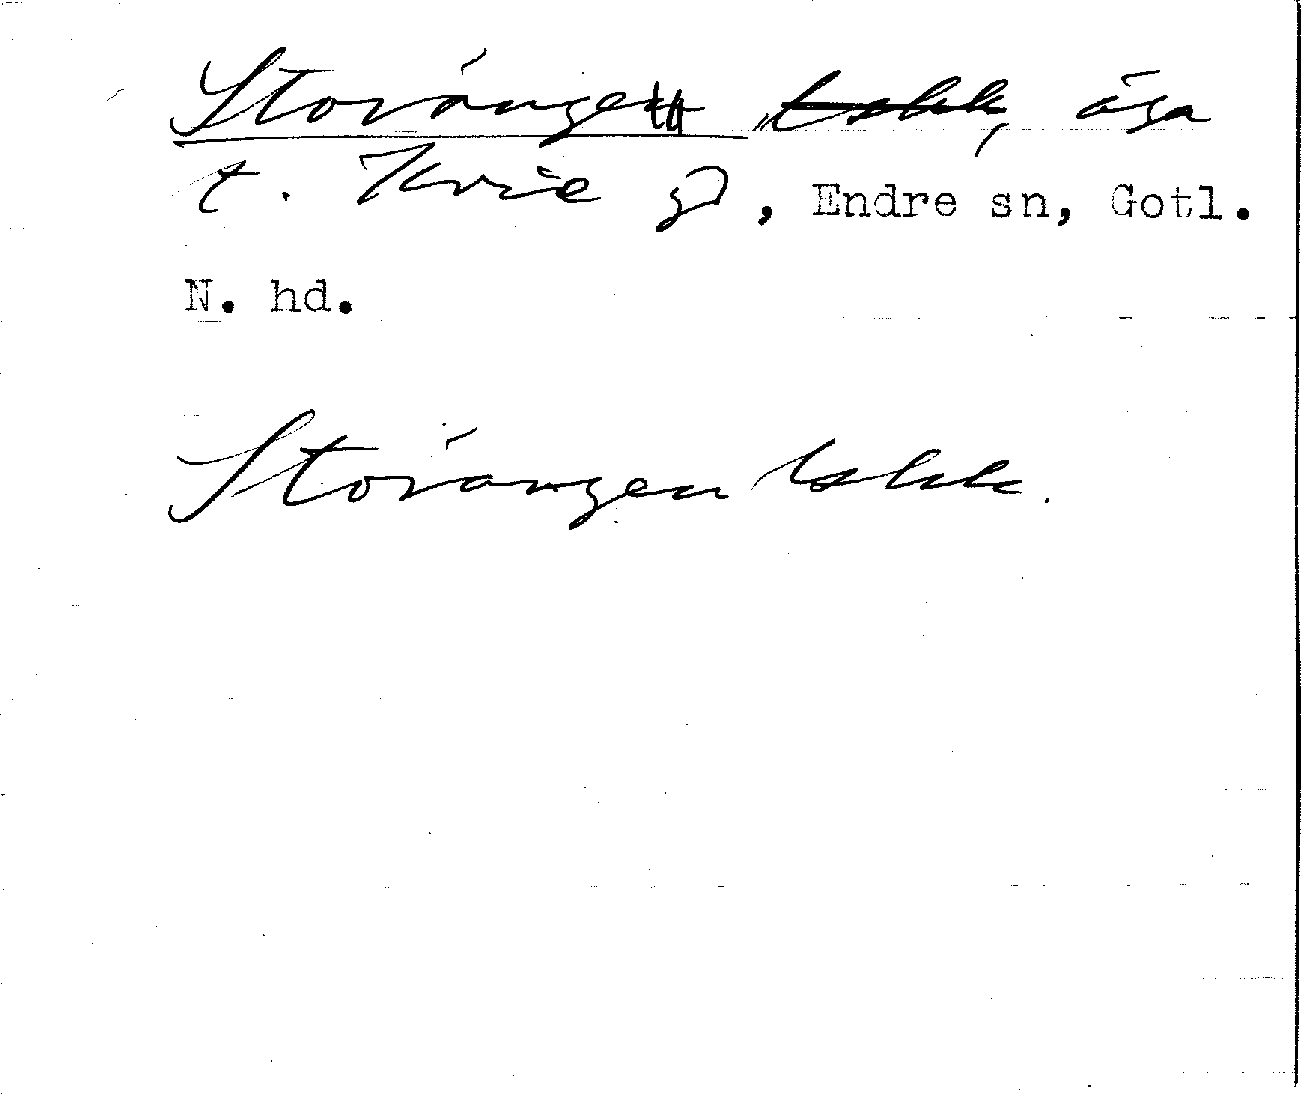 Storänge, äga
t. Kvie gd, Endre sn, Gotl.
N. hd.
Storängen